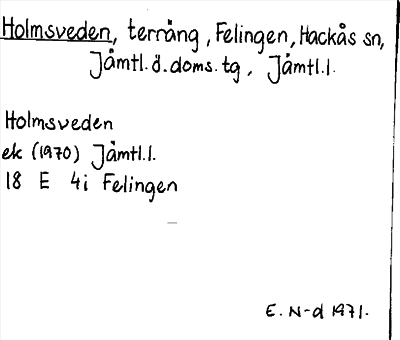 Holmsveden, terräng, Felingen, Hackås sn,
Jämtl.ö.doms.tg, Jämtl.l.
Holmsveden
ek (1970) Jämtl.l.
18 E 4i Felingen
E. N-d 1971.